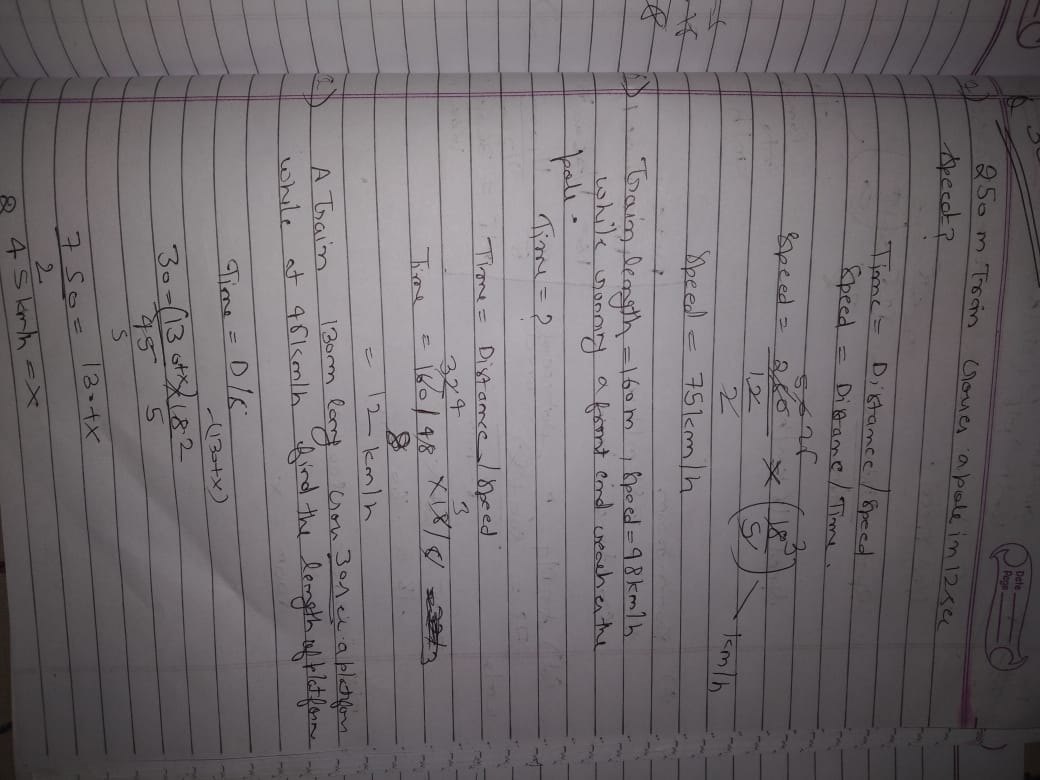 Date
Page
Q) 250 m Train crosses a pole in 12 sec
speed?
Time = Distance / speed
Speed = Distance / Time
Speed = 250 / 12 × (18 / 5) km/h
Speed = 75 km/h
Train length = 160 m, speed = 48 km/h
while crossing a front end reaches the
pole.
Time = ?
Time = Distance / speed
Time = 160 / 48 × 18 / 5
= 12 km/h
2) A Train 130 m long cross 30 sec a platform
while at 45 km/h find the length of platform
Time = D / S
(130+x)
30 = (130+x) × 18 / 45 × 5
750 / 2 = 130+x
245 km/h = x